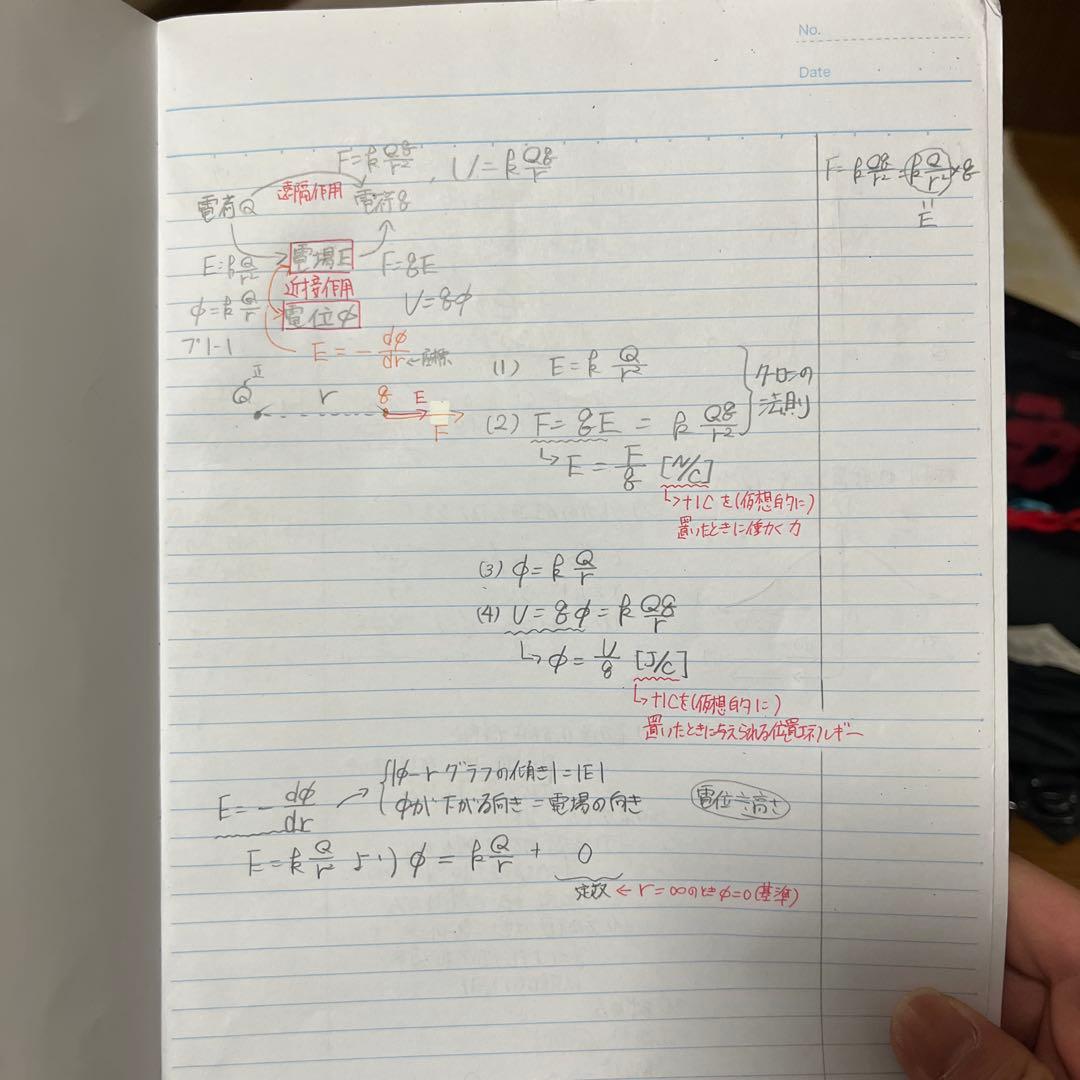 No.
Date
F=k Qq/r² , U=k Qq/r
電荷Q 遠隔作用 電荷q
E=k Q/r² 電場E F=qE
近接作用
φ=k Q/r 電位φ U=qφ
プリ-1 E=-dφ/dr ←座標
Q 正 r q E
F
F=k Qq/r²=k Q/r²×q
=
E
(1) E=k Q/r²
(2) F=qE=k Qq/r²
クーロンの
法則
↳E=F/q [N/C]
↳+1Cを(仮想的に)
置いたときに働く力
(3) φ=k Q/r
(4) U=qφ=k Qq/r
↳φ=U/q [J/C]
↳+1Cを(仮想的に)
置いたときに与えられる位置エネルギー
E=-dφ/dr → { |φ-rグラフの傾き|=|E|
φが下がる向き=電場の向き
電位≒高さ
E=k Q/r² より φ=k Q/r + 0
定数 ← r=∞のときφ=0(基準)